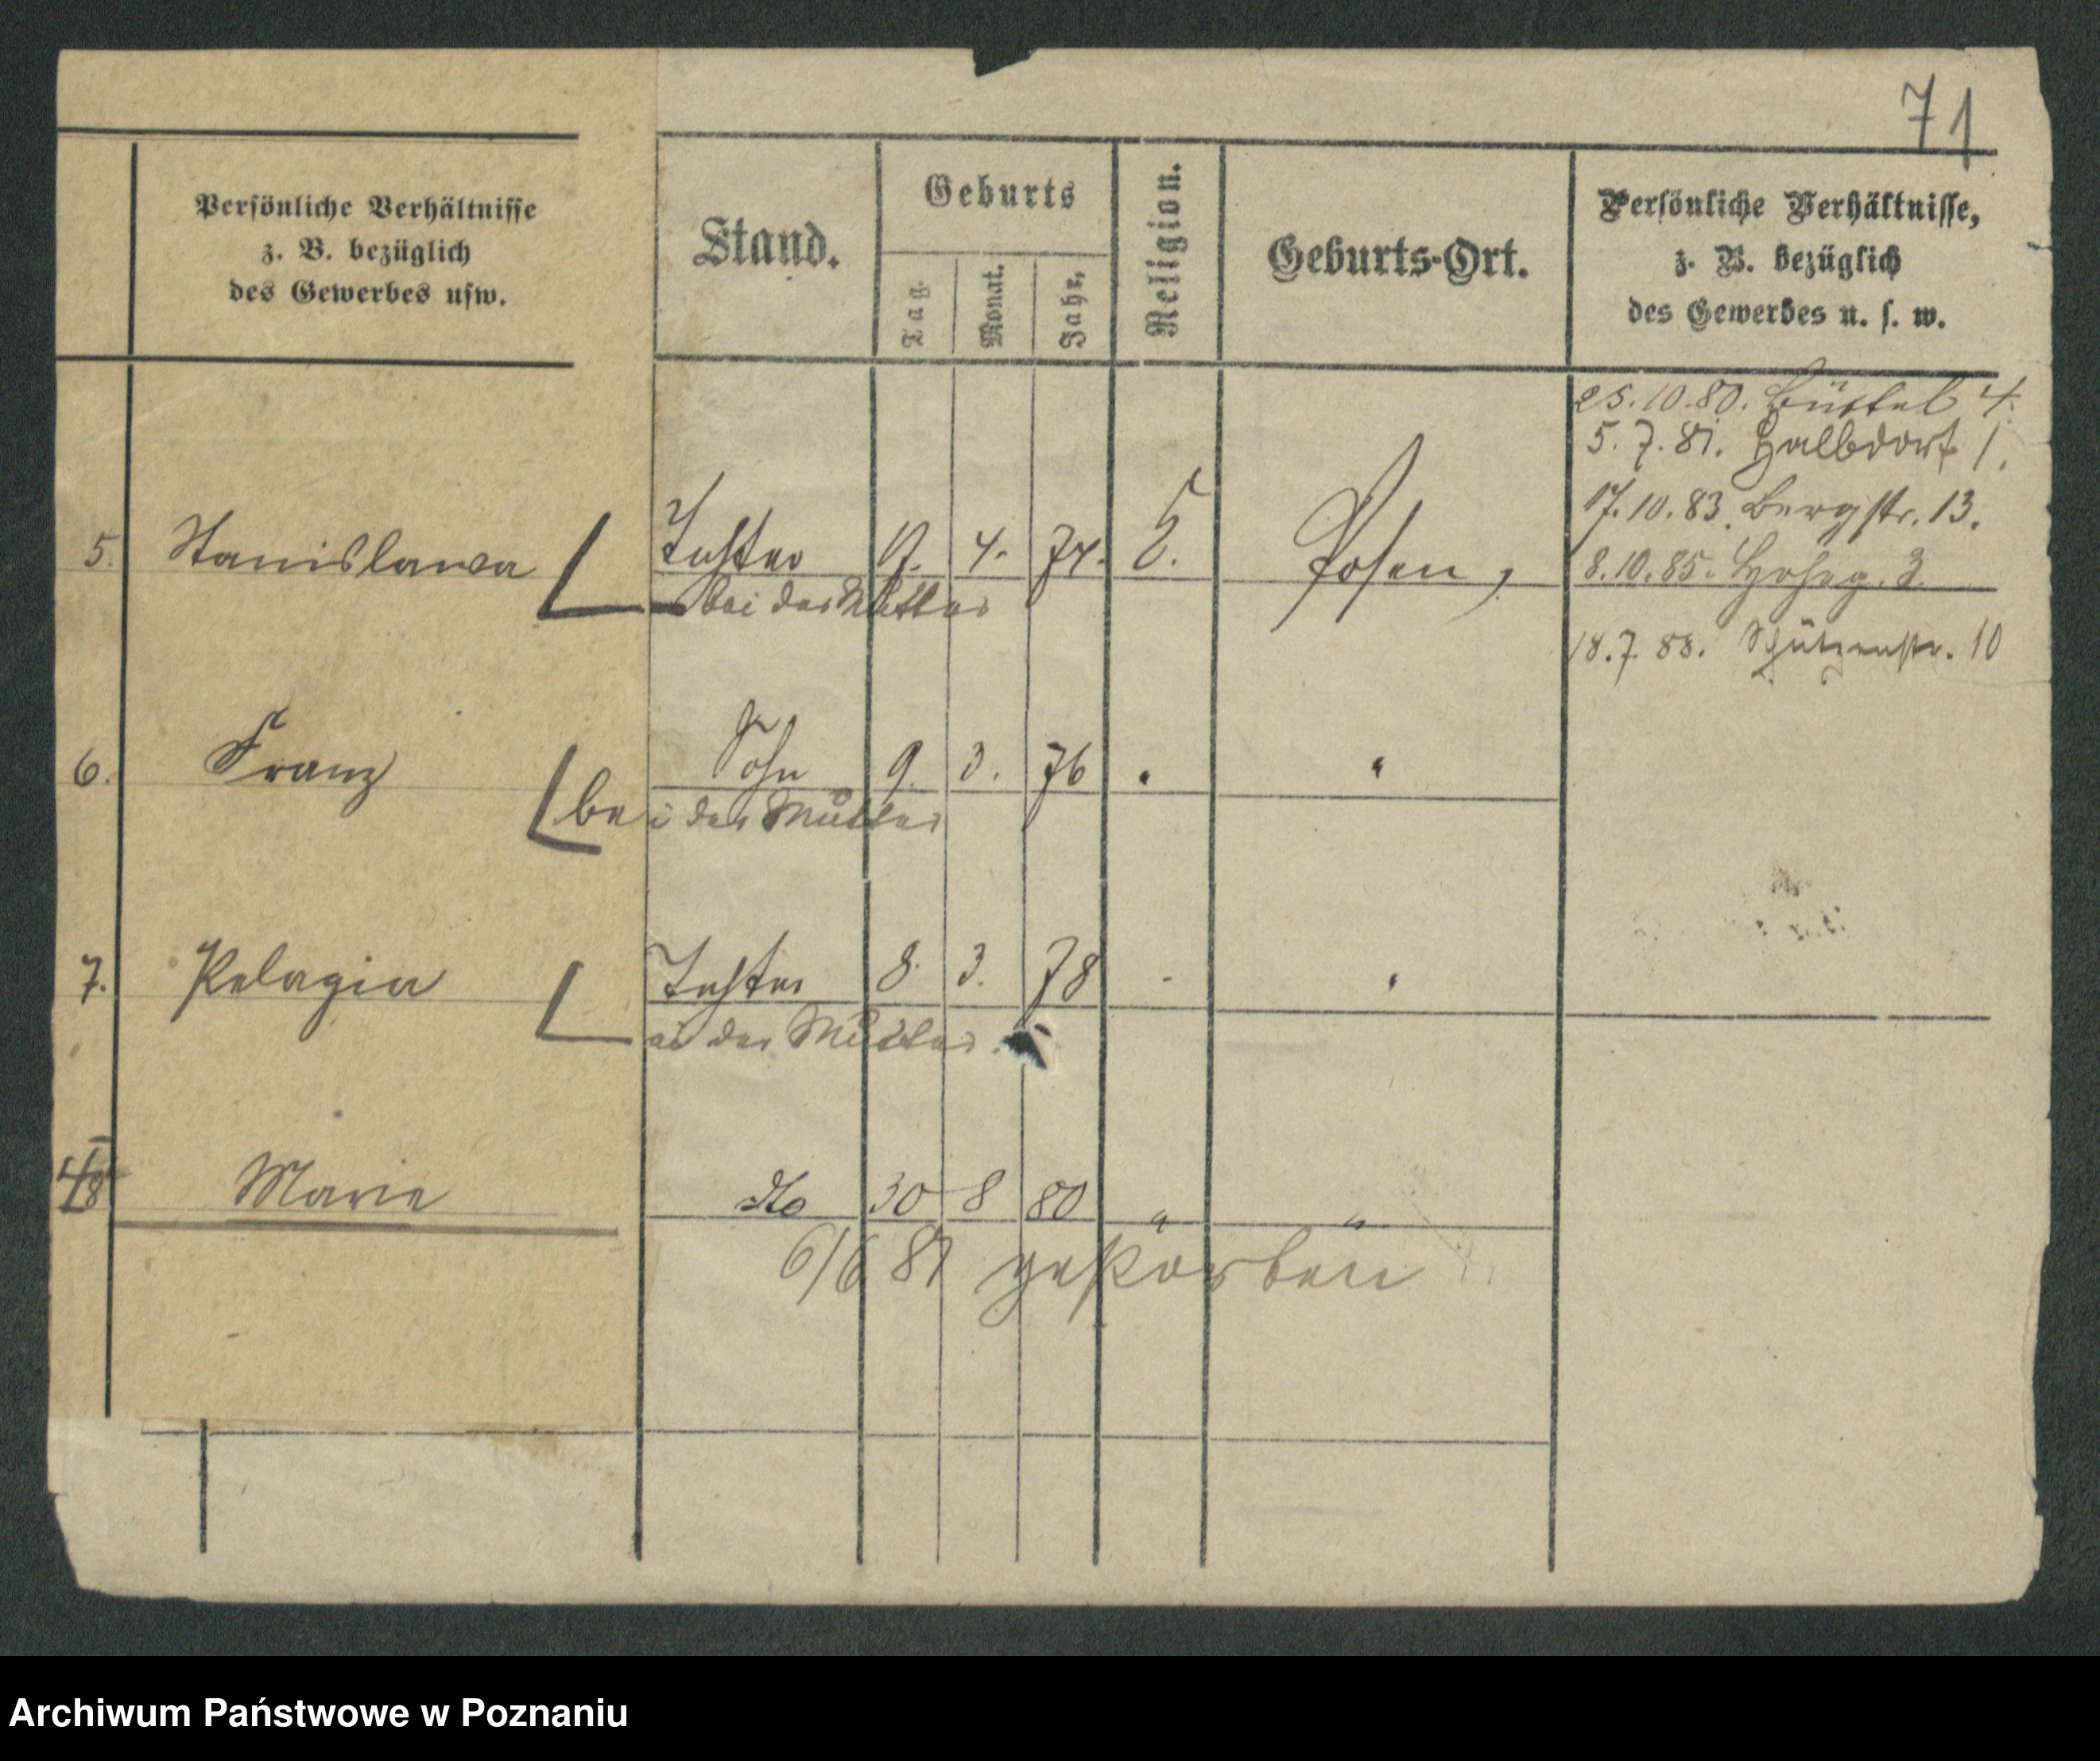 71
Persönliche Verhältnisse
z. B. bezüglich
des Gewerbes usw.
Stand.
Geburts
Tag.
Monat.
Jahr.
Religion.
Geburts-Ort.
Persönliche Verhältnisse,
z. B. bezüglich
des Gewerbes u. s. w.
25.10.80. Büttel 4.
5.7.81. Halbdorf 1.
17.10.83. Bergstr. 13.
5. Stanislawa Tochter 4. 74. Posen, 8.10.85. Hoheg. 3.
bei der Mutter
18.7.88. Schützenstr. 10
6. Franz Sohn 9. 3. 76 "
bei der Mutter
7. Pelagia Tochter 8. 3. 78 "
bei der Mutter.
8 Marie dto 30 8 80 " "
6/6 81 gestorben
Archiwum Państwowe w Poznaniu